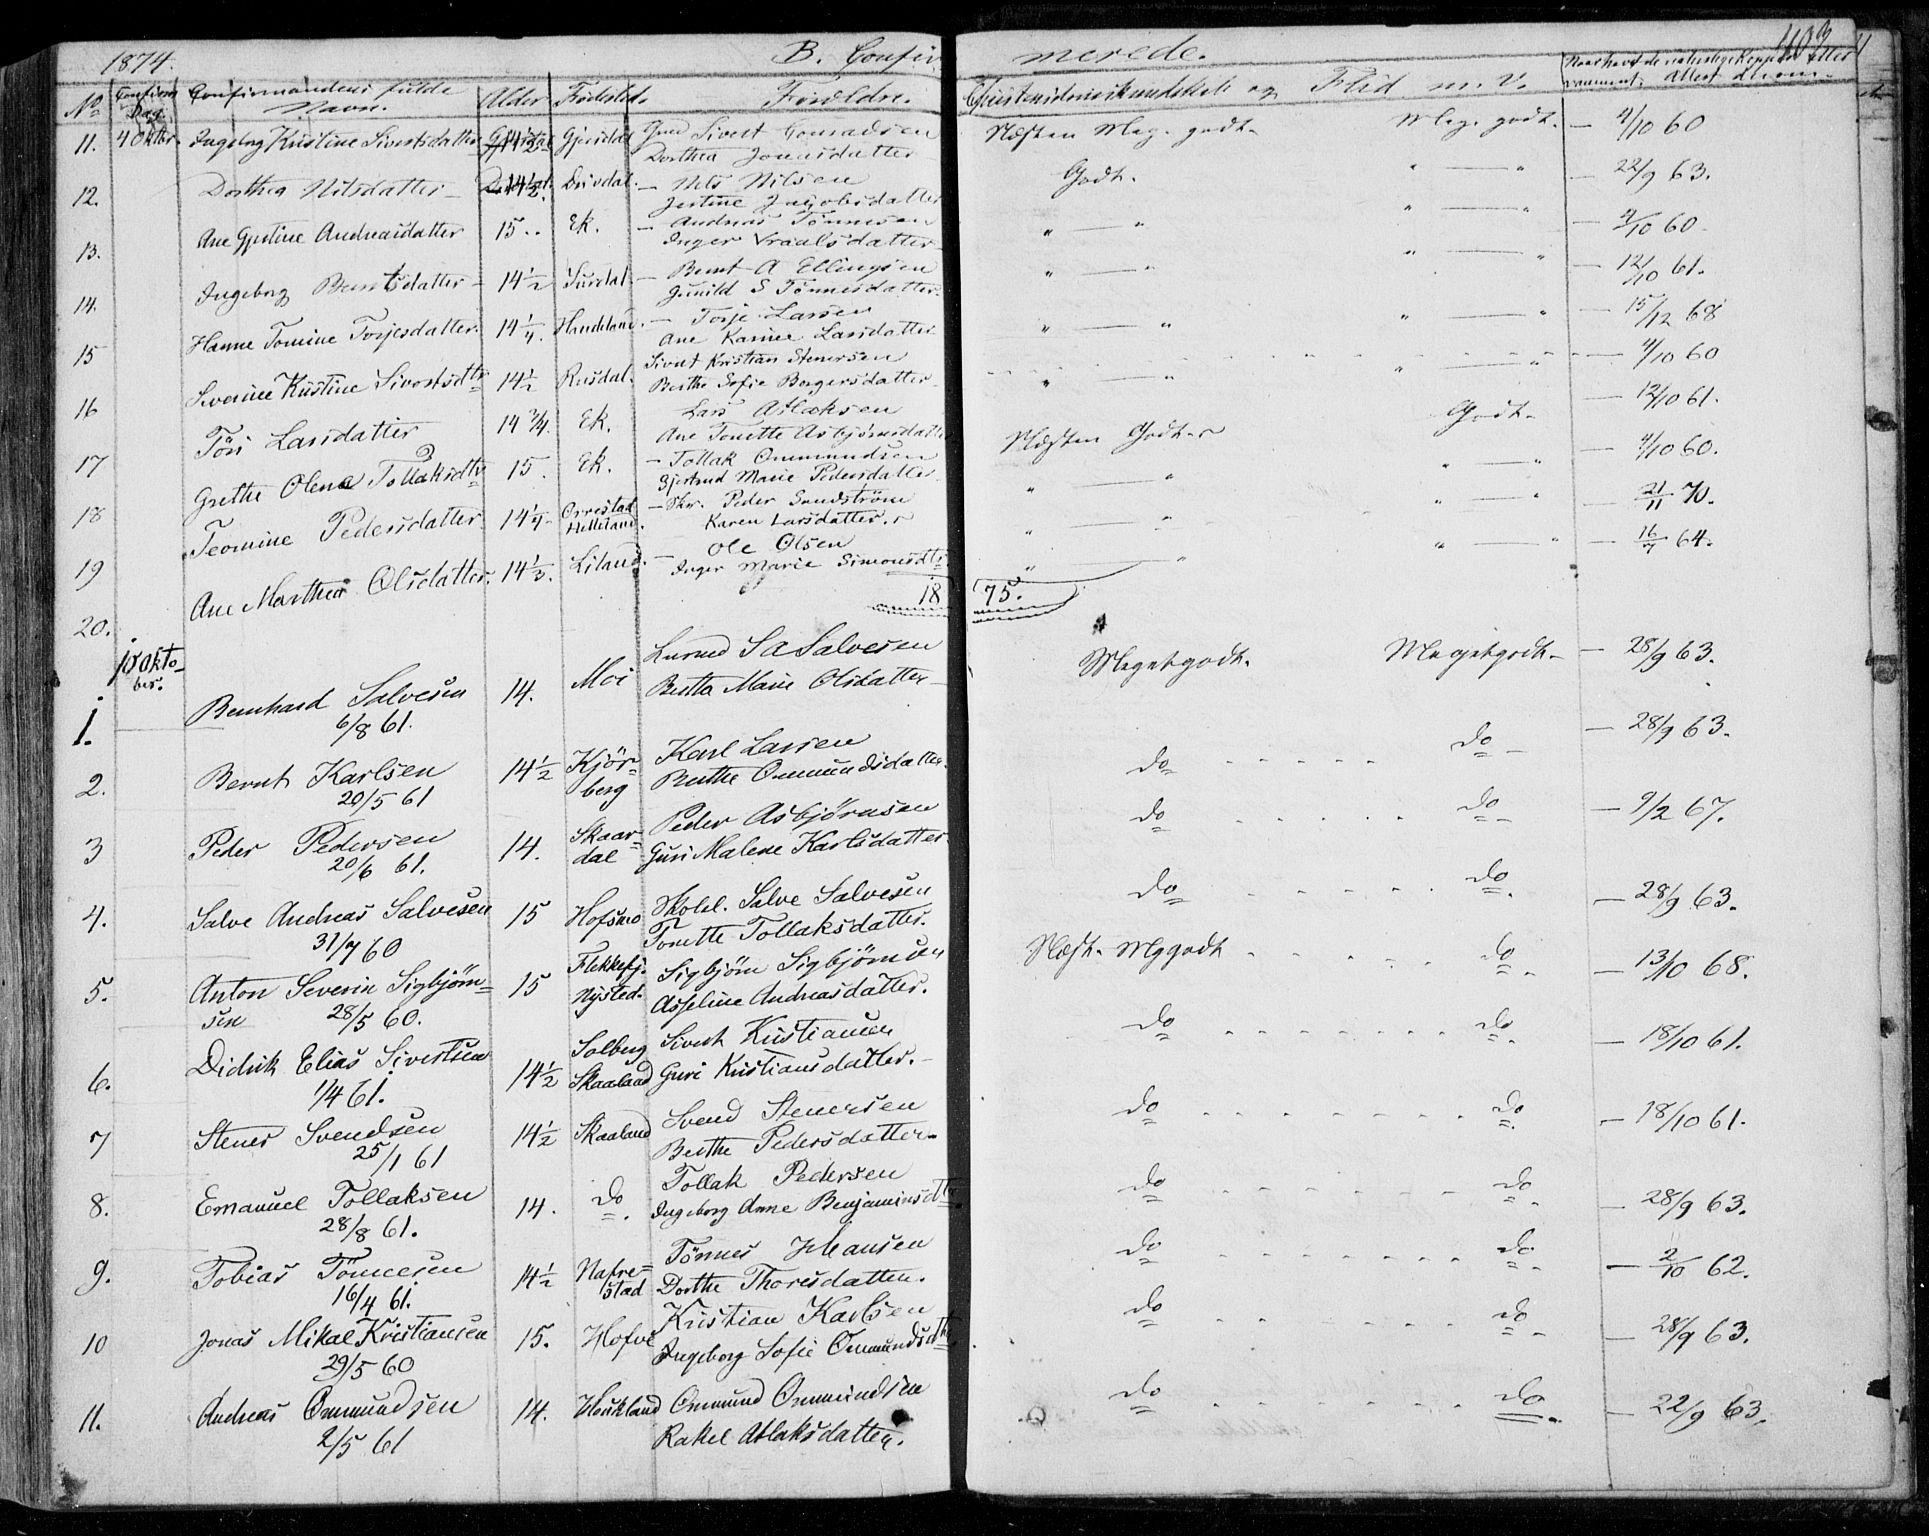 1874. B. Confir merede. 103
No Confirm. Dag. Confirmandens fulde Navn. Alder Fødested. Forældre. Christendomskundskab og Flid m. V. Naar havt de naturlige Kopper eller vaccineret: Attest derom.
11. 4 Oktbr. Ingeborg Kristine Sivertsdatter 14½ Gjersdal Gmd Sivert Conradsen Næsten Meg. godt. Meg. godt. — 4/10 60
Dorthea Jonasdatter
12. Dorthea Nilsdatter — 14½. Drivdal. — Nils Nilsen Godt. " — " — 22/9 63.
Jestine Jacobsdatter
13. Ane Gjestine Andreasdatter 15.. Ek. — Andreas Tønnesen " — " " — " — 4/10 60.
Inger Vraalsdatter
14. Ingeborg Berntsdatter — 14½ Surdal — Bernt A Ellingsen " — " " — " — 12/10 61.
Gunild S Tönnesdatter.
15 Hanne Tomine Torjesdatter. 14¼. Haudeland. — Torje Larsen " — " " — " — 15/12 68
Ane Karine Larsdatter
16 Severine Kristine Sivertsdtr 14½ Rusdal. Sivert Kristian Stenersen " — " " — " — 4/10 60
Berthe Sofie Borgersdatter
17 Töri Larsdatter 14¾. Ek. Lars Atlaksen Næsten Godt. Godt. — 12/10 61.
Ane Tonette Asbjörnsdatter
18 Grethe Olene Tollaksdtr 15. Ek. — Tollak Ommundsen " — " " — " — 4/10 60.
Gjertrud Marie Pedersdatter
19 Teomine Pedersdatter 14¼. Orrestad Helleland. — Skr. Peder Sandström " — " " — " — 21/11 70.
Karen Larsdatter.
20. Ane Marthea Olsdatter. 14⅓. Liland. — Ole Olsen " — " " — " — 16/7 64.
Inger Marie Simonsdtr
18 75.
1. 10 Okto-ber. Bernhard Salvesen 14. Moi Lærred S A Salvesen Megetgodt. Megetgodt — 28/9 63.
6/8 61. Bertha Marie Olsdatter
2. Bernt Karlsen 14½ Kjör-berg Karl Larsen do do — 28/9 63.
20/5 61 Berthe Ommundsdatter.
3 Peder Pedersen 14. Skaar-dal Peder Asbjörnsen do do — 9/2 67.
20/6 61. Guri Malene Karlsdatter
4. Salve Andreas Salvesen 15 Hofsmo Skolel. Salve Salvesen do do. — 28/9 63.
31/7 60 Tonette Tollaksdatter.
5. Anton Severin Sigbjörn- 15 Flekkefj. Nysted. Sigbjörn Sigbjörnsen Næst. Mggodt do — 13/10 68.
sen 28/5 60. Asseline Andreasdatter.
6. Didrik Elias Sivertsen 14½ Solberg Skaaland Sivert Kristiansen do do — 18/10 61.
1/4 61. Guri Kristiansdatter.
7 Stener Svendsen 14½ Skaaland Svend Stenersen do do — 18/10 61.
25/1 61 Berthe Pedersdatter
8. Emanuel Tollaksen 14. do Tollak Pedersen do do — 28/9 63.
28/8 61. Ingeborg Anne Benjaminsdtr
9. Tobias Tönnesen 14½ Nafre-stad Tönnes Hansen do do — 2/10 62.
16/4 61. Dorthe Thoresdatter.
10 Jonas Mikal Kristiansen 15. Hofve Kristian Karlsen do do — 28/9 63.
29/5 60 Ingeborg Sofie Ommundsdtr
11. Andreas Ommundsen 14. Haukland Ommund Ommundsen do do. — 22/9 63.
2/5 61 Rakel Atlaksdatter.